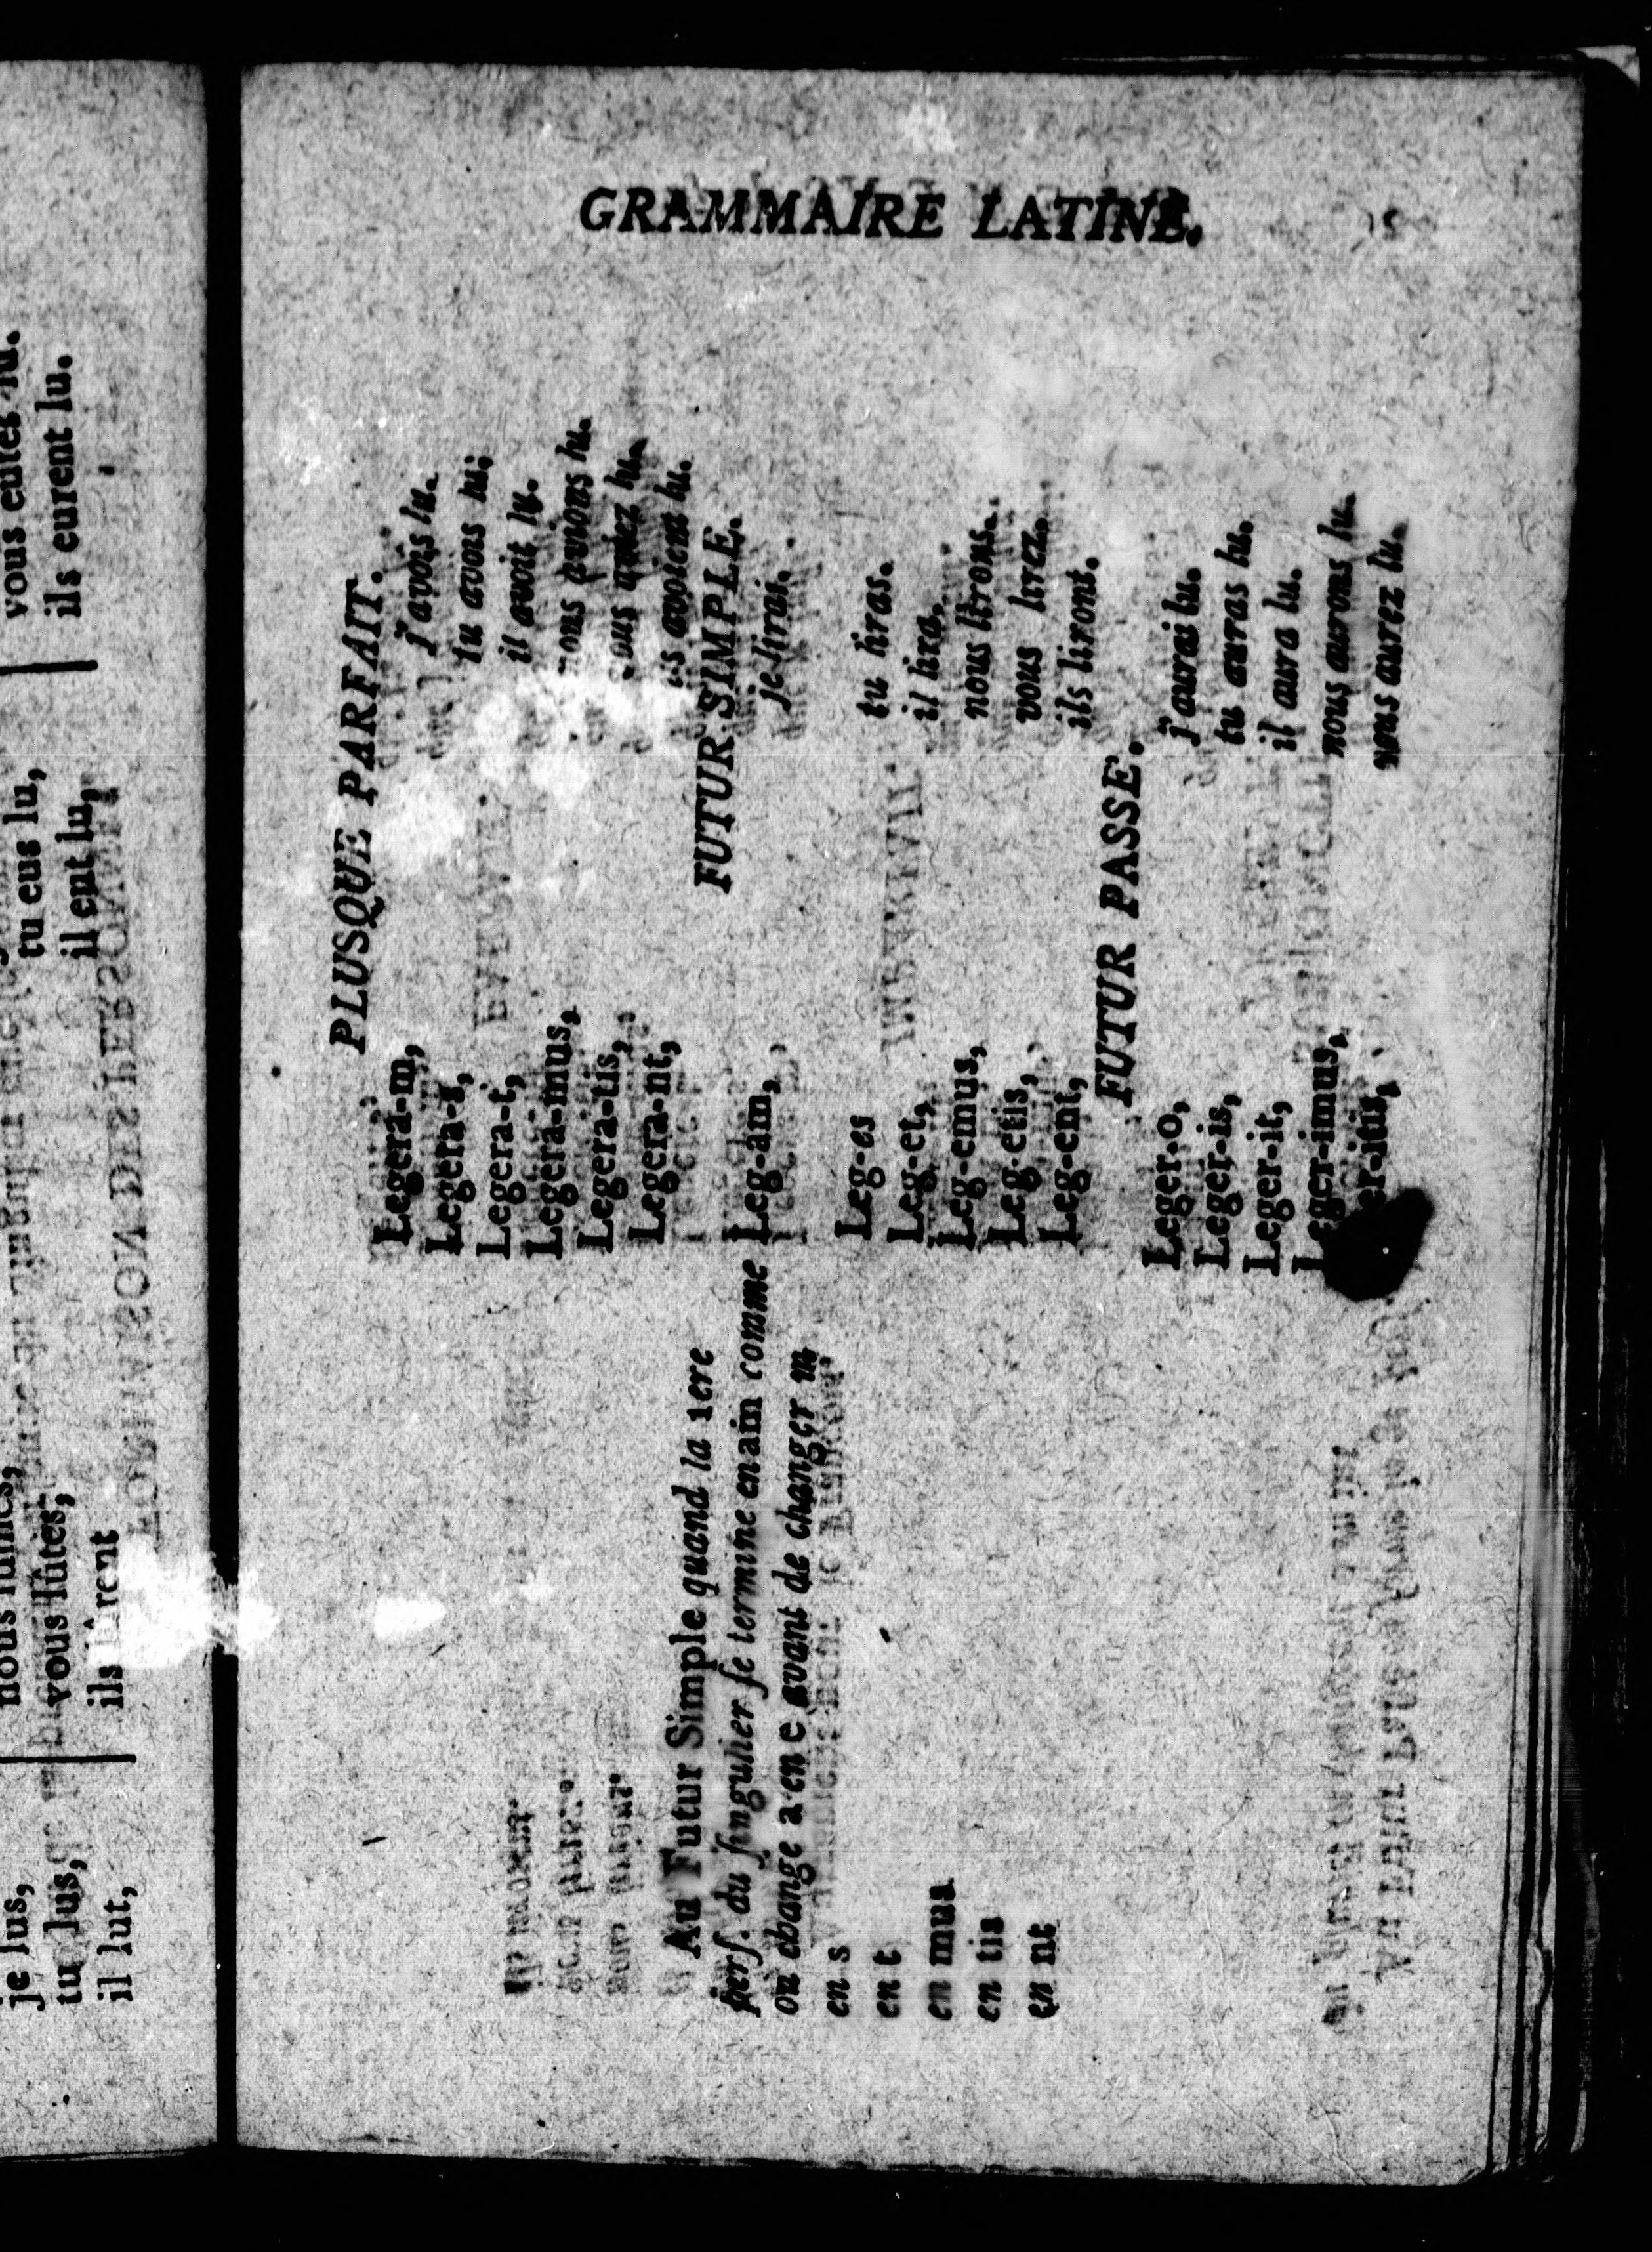 GRAMMAIRE LATINE.
PLUSQUE PARFAIT.
Legera-m, j'avois lu.
Legera-s, tu avois lu;
Legera-t, il avoit lu.
Legera-mus, nous avions lu.
Legera-tis, vous aviez lu.
Legera-nt, ils avoient lu.
FUTUR SIMPLE.
Au Futur Simple quand la 1ere
perſ. du ſingulier ſe termine en am comme Leg-am, je lirai.
on change a en e avant de changer m
en s Leg-es tu liras.
en t Leg-et, il lira.
en mus Leg-emus, nous lirons.
en tis Leg-etis, vous lirez.
en nt Leg-ent, ils liront.
FUTUR PASSE.
Leger-o, j'aurai lu.
Leger-is, tu auras lu.
Leger-it, il aura lu.
Leger-imus, nous aurons lu.
er-itis, vous aurez lu.
je lus,
tu lus,
il lut,
vous lûtes,
ils rent
tu eus lu,
il eut lu,
vous eutes lu.
ils eurent lu.